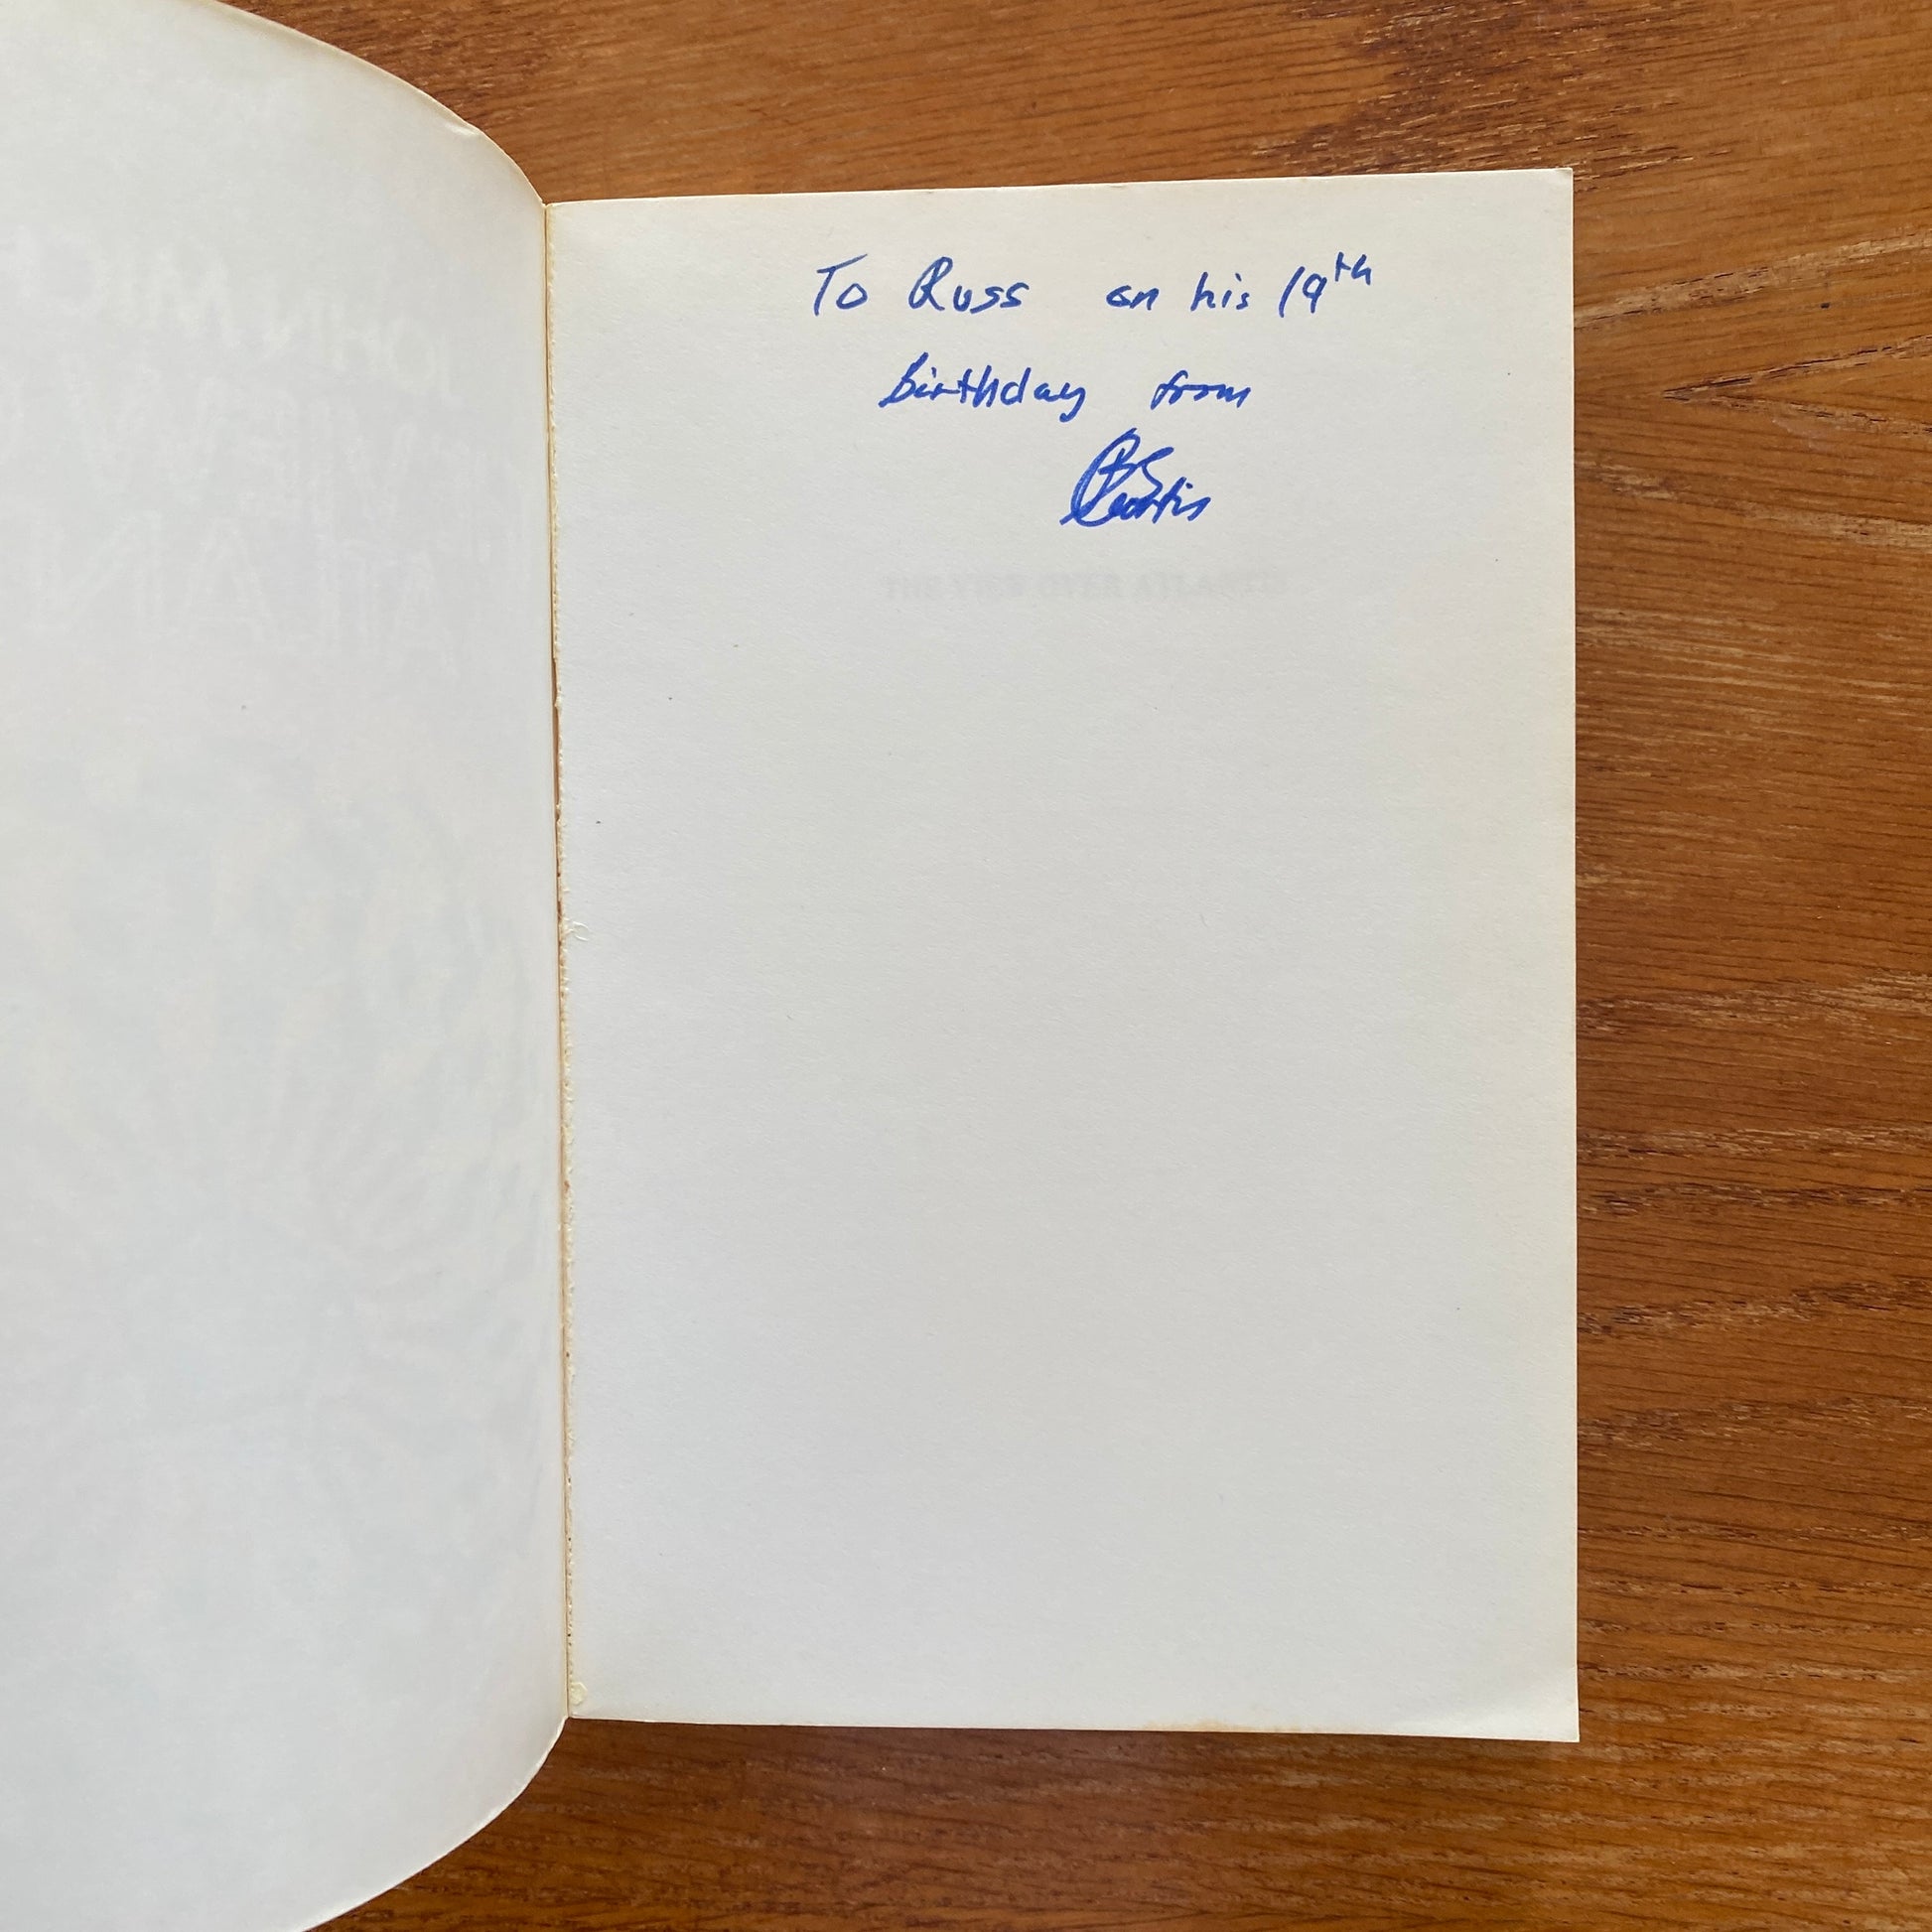 To Russ on his 19th
birthday from
Curtis
THE VIEW OVER ATLANTIS